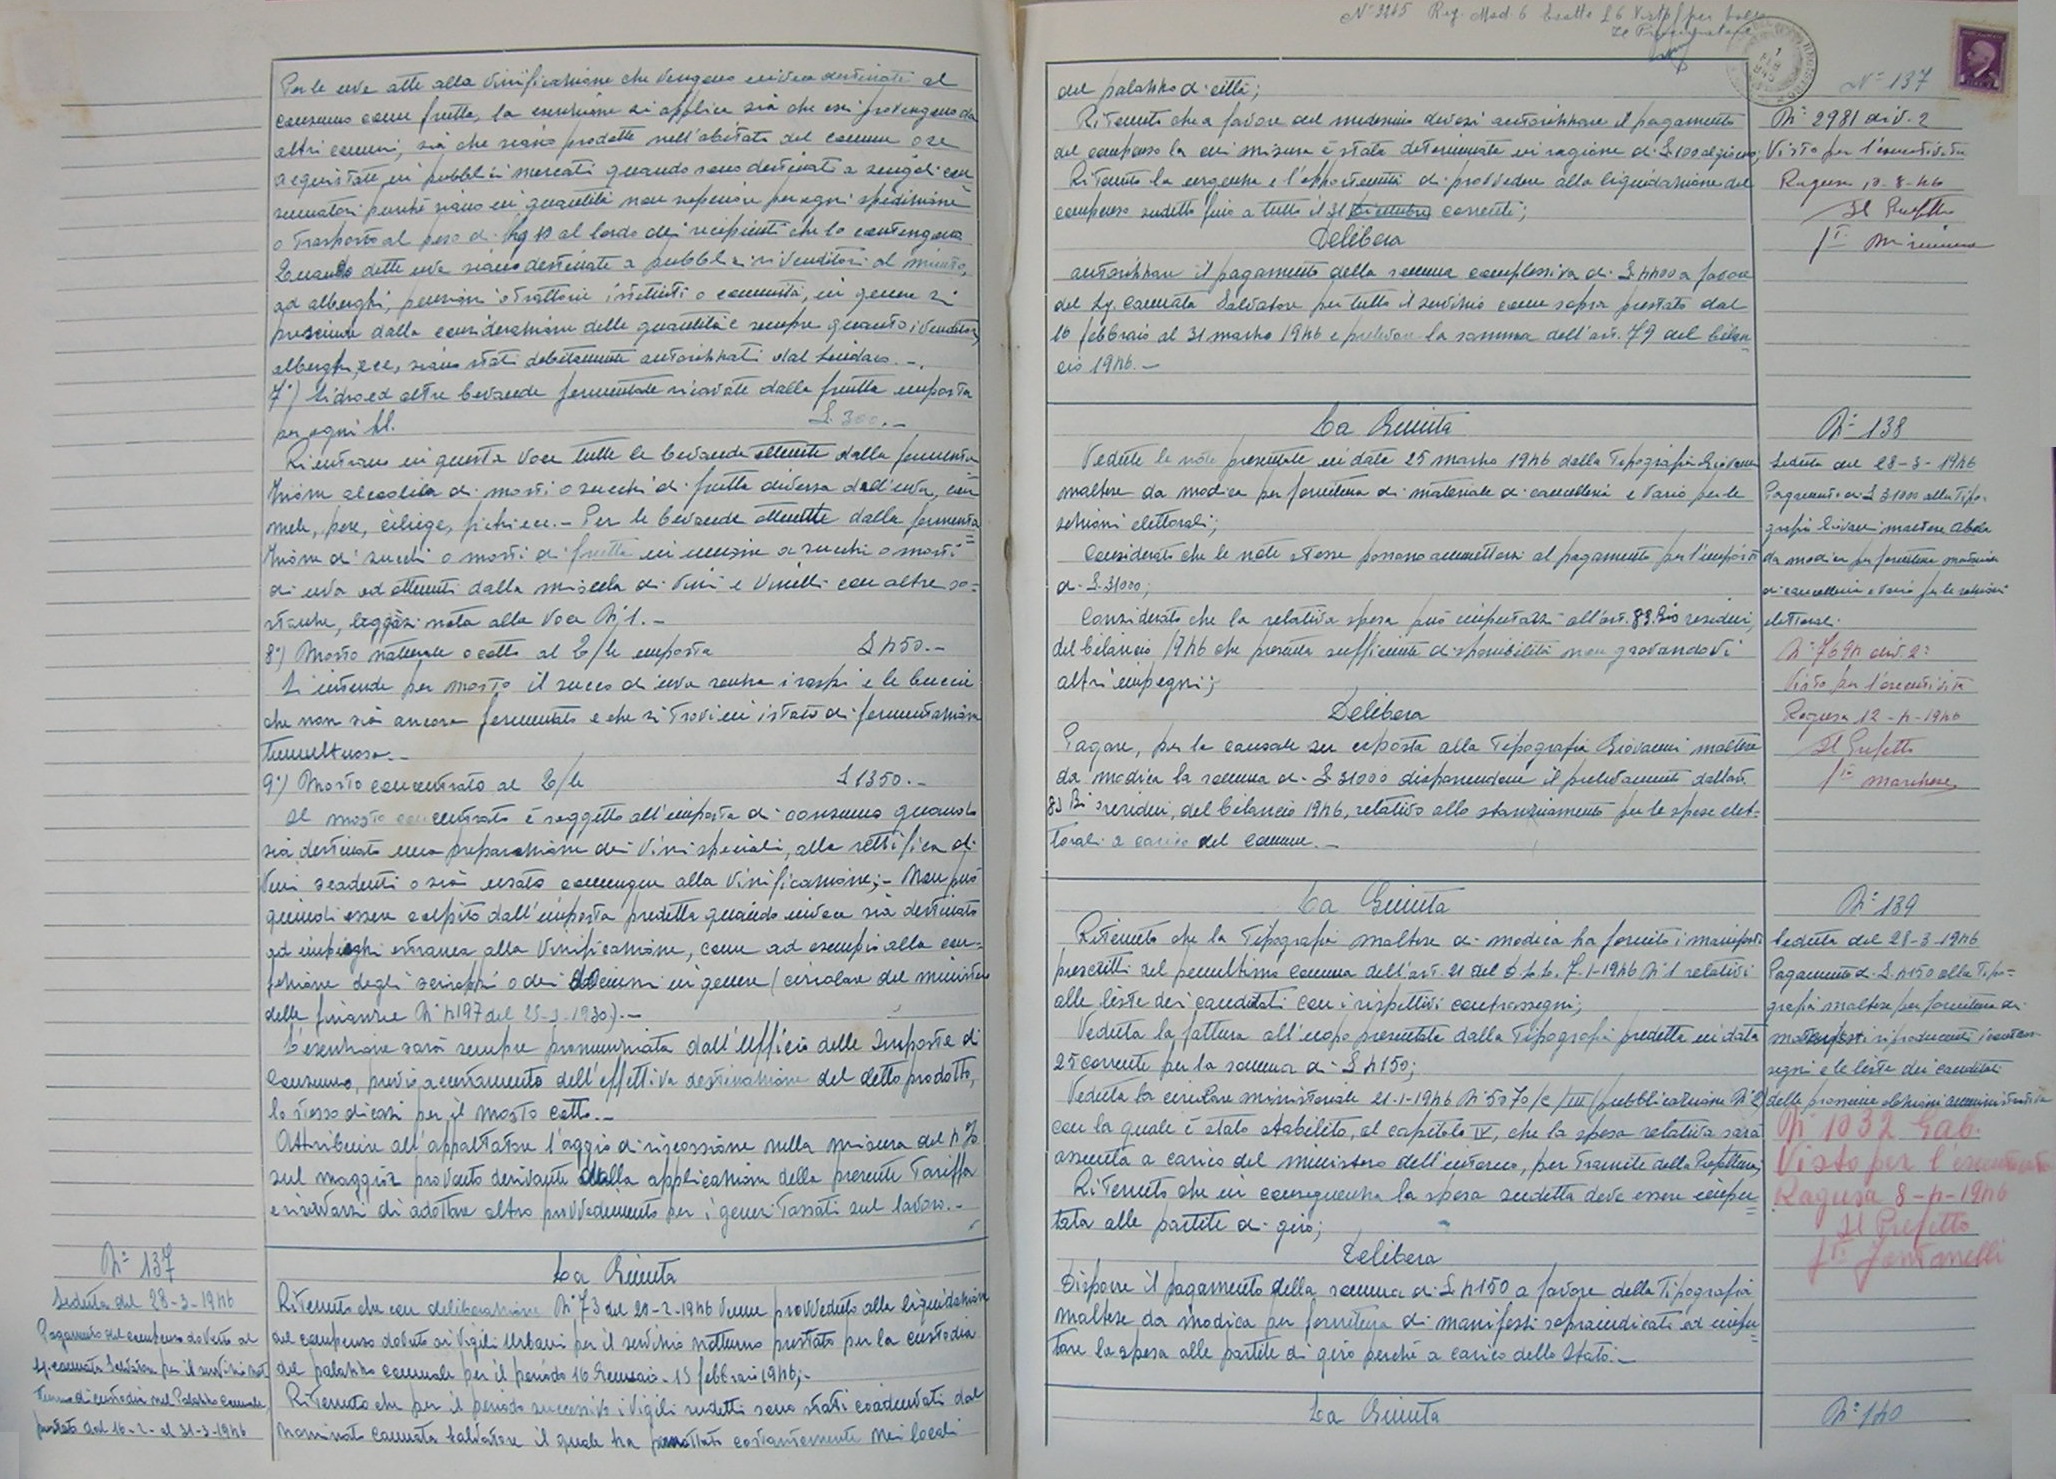 Per le uve atte alla vinificazione che vengono invece destinate al
consumo come frutta, la esenzione si applica sia che esse provengono da
altri comuni, sia che siano prodotte nell'abitato del comune o se
acquistate in pubblici mercati quando sono destinate a singoli con=
sumatori purché siano in quantità non superiore per ogni spedizione
o trasporto al peso di Kg 10 al lordo dei recipienti che lo contengono
Quando dette uve siano destinate a pubblici rivenditori al minuto,
ad alberghi, pensioni o trattorie, istituti o comunità, in genere si
prescinde dalla considerazione delle quantità e sempre quanto i venditori,
alberghi, ecc, siano stati debitamente autorizzati dal Sindaco.-
7°) Sidro ed altre bevande fermentate ricavate dalla frutta imposta
per ogni Hl. £ 300.-
Rientrano in questa voce tutte le bevande ottenute dalla fermenta=
zione alcoolica di mosti o succhi di frutta diversa dall'uva, con
mele, pere, ciliege, fichi ecc.- Per le bevande ottenute dalla fermenta=
zione di succhi o mosti di frutta in unione a succhi o mosti
di uva ed ottenuti dalla miscela di vini e vinelli con altre so=
stanze, leggasi nota alla voce N° 1.-
8°) Mosto naturale o cotto al Q/le imposta £ 450.-
Si intende per mosto il succo di uva senza i raspi e le bucce
che non sia ancora fermentato e che si trovi in istato di fermentazione
tumultuosa.-
9°) Mosto concentrato al Q/le £ 1350.-
Il mosto concentrato è soggetto all'imposta di consumo quando
sia destinato una preparazione dei vini speciali, alla rettifica di
vini scadenti o sia usato comunque alla vinificazione;- Non può
quindi essere colpito dall'imposta predetta quando invece sia destinato
ad impieghi estranea alla vinificazione, come ad esempio alla con=
fezione degli sciroppi o dei in genere (circolare del ministero
delle finanze N° 4197 del 25-3-1930).-
L'esenzione sarà sempre pronunziata dall'Ufficio delle Imposte di
Consumo, previo accertamento dell'effettiva destinazione del detto prodotto,
lo stesso dicasi per il mosto cotto.-
Attribuire all'appaltatore l'aggio di riscossione nella misura del 4%
sul maggior provento derivante dalla applicazione della presente Tariffa
e riservarsi di adottare altro provvedimento per i generi tassati sul lavoro.-
N° 137
Seduta del 28-3-1946
Pagamento del compenso dovuto al
Sig. Cannata Salvatore per il servizio not
turno di custodia nel Palazzo Comunale,
prestato dal 16-2- al 31-3-1946
La Giunta
Ritenuto che con deliberazione N° 73 del 20-2-1946 venne provveduto alla liquidazione
del compenso dovuto ai Vigili Urbani per il servizio notturno prestato per la custodia
del palazzo comunale per il periodo 16 Gennaio - 15 febbraio 1946;-
Ritenuto che per il periodo successivo i vigili sudetti sono stati coadiuvati dal
nominato Cannata Salvatore il quale ha pernottato costantemente nei locali
N° 2245 Reg. Mod. 6 Esatte £ 6
Il Procuratore
del palazzo di città;
Ritenuto che a favore del medesimo devesi autorizzare il pagamento
del compenso la cui misura è stata determinata in ragione di £ 100 al giorno;
Ritenuto la urgenza e l'opportunità di provvedere alla liquidazione del
compenso sudetto fino a tutto il 31 dicembre corrente;
Delibera
autorizzare il pagamento della somma complessiva di £ 4400 a favore
del Sig. Cannata Salvatore per tutto il servizio come sopra prestato dal
16 febbraio al 31 marzo 1946 e prelevare la somma dell'art. 79 del bilan=
cio 1946.-
N° 137
N° 2981 div. 2
Visto per l'esecutività
Ragusa 10-8-46
Il Prefetto
La Giunta
Vedute le note presentate in data 25 marzo 1946 dalla Tipografia Giovanni
Maltese da Modica per fornitura di materiale di cancelleria e vario per le
sezioni elettorali;
Considerato che le note stesse possono ammettersi al pagamento per l'importo
di £ 31000;
Considerato che la relativa spesa può imputarsi all'art. 83 Bis residui,
del bilancio 1946 che presenta sufficiente disponibilità non gravandovi
altri impegni;
Delibera
Pagare, per la causale su esposta alla Tipografia Giovanni Maltese
da Modica la somma di £ 31000 disponendone il prelevamento dall'art.
83 Bis residui, del bilancio 1946, relativo allo stanziamento per le spese elet=
torali a carico del Comune.-
N° 138
Seduta del 28-3-1946
Pagamento di £ 31000 alla Tipo=
grafia Giovanni Maltese Abela
da Modica per fornitura materiale
di cancelleria e vario per le sezioni
elettorali.
N° 7694 div. 2ª
Visto per l'esecutività
Ragusa 12-4-1946
Il Prefetto
fto Marchese
La Giunta
Ritenuto che la Tipografia Maltese di Modica ha fornito i manifesti
prescritti del penultimo comma dell'art. 21 del D.L.L. 7-1-1946 N° 1 relativi
alle liste dei candidati con i rispettivi contrassegni;
Veduta la fattura all'uopo presentata dalla Tipografia predetta in data
25 corrente per la somma di £ 4150;
Veduta la circolare ministeriale 21-1-1946 N° 5070/C/III (pubblicazione N° 2)
con la quale è stato stabilito, al capitolo IV, che la spesa relativa sarà
assunta a carico del ministero dell'interno, per tramite della Prefettura;
Ritenuto che in conseguenza la spesa sudetta deve essere impu=
tata alle partite di giro;
Delibera
Disporre il pagamento della somma di £ 4150 a favore della Tipografia
Maltese da Modica per fornitura di manifesti sopraindicati ed impu=
tare la spesa alle partite di giro perché a carico dello Stato.-
N° 139
Seduta del 28-3-1946
Pagamento di £ 4150 alla Tipo=
grafia Maltese per fornitura di
manifesti riproducenti i contras=
segni e le liste dei candidati
delle prossime elezioni amministrative
N° 1032 Gab.
Visto per l'esecutività
Ragusa 8-4-1946
Il Prefetto
fto Jentanelli
La Giunta
N° 140